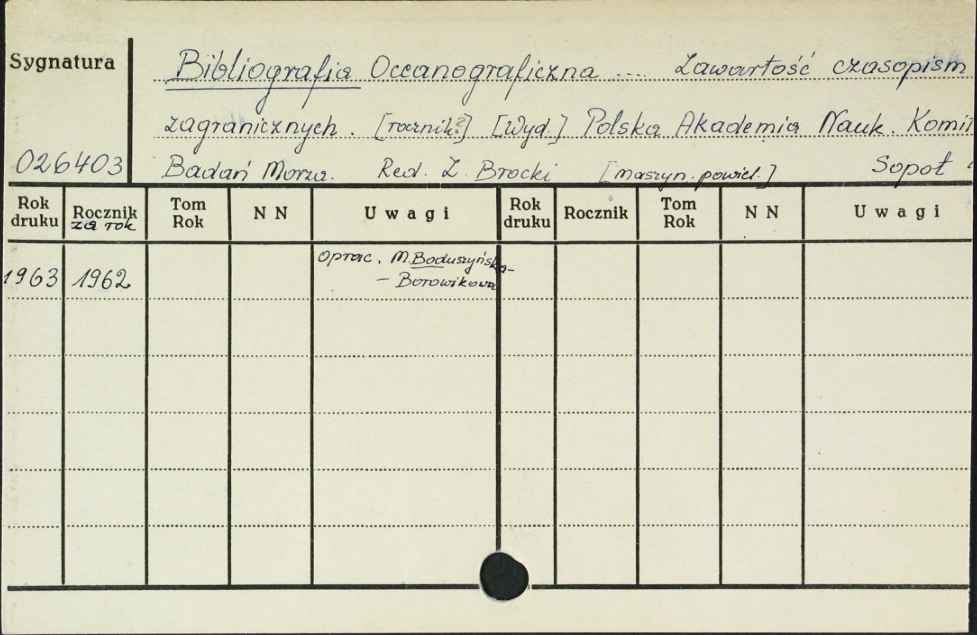 Sygnatura
Bibliografia Oceanograficzna ... Zawartość czasopism
zagranicznych. [rocznik?] [Wyd.] Polska Akademia Nauk. Komi
026403 Badań Morza. Red. Z. Brocki [maszyn. powiel.] Sopot.
Rok druku Rocznik za rok Tom Rok N N Uwagi Rok druku Rocznik Tom Rok N N Uwagi
1963 1962 Oprac. M. Boduszyńska-
- Borowikowa